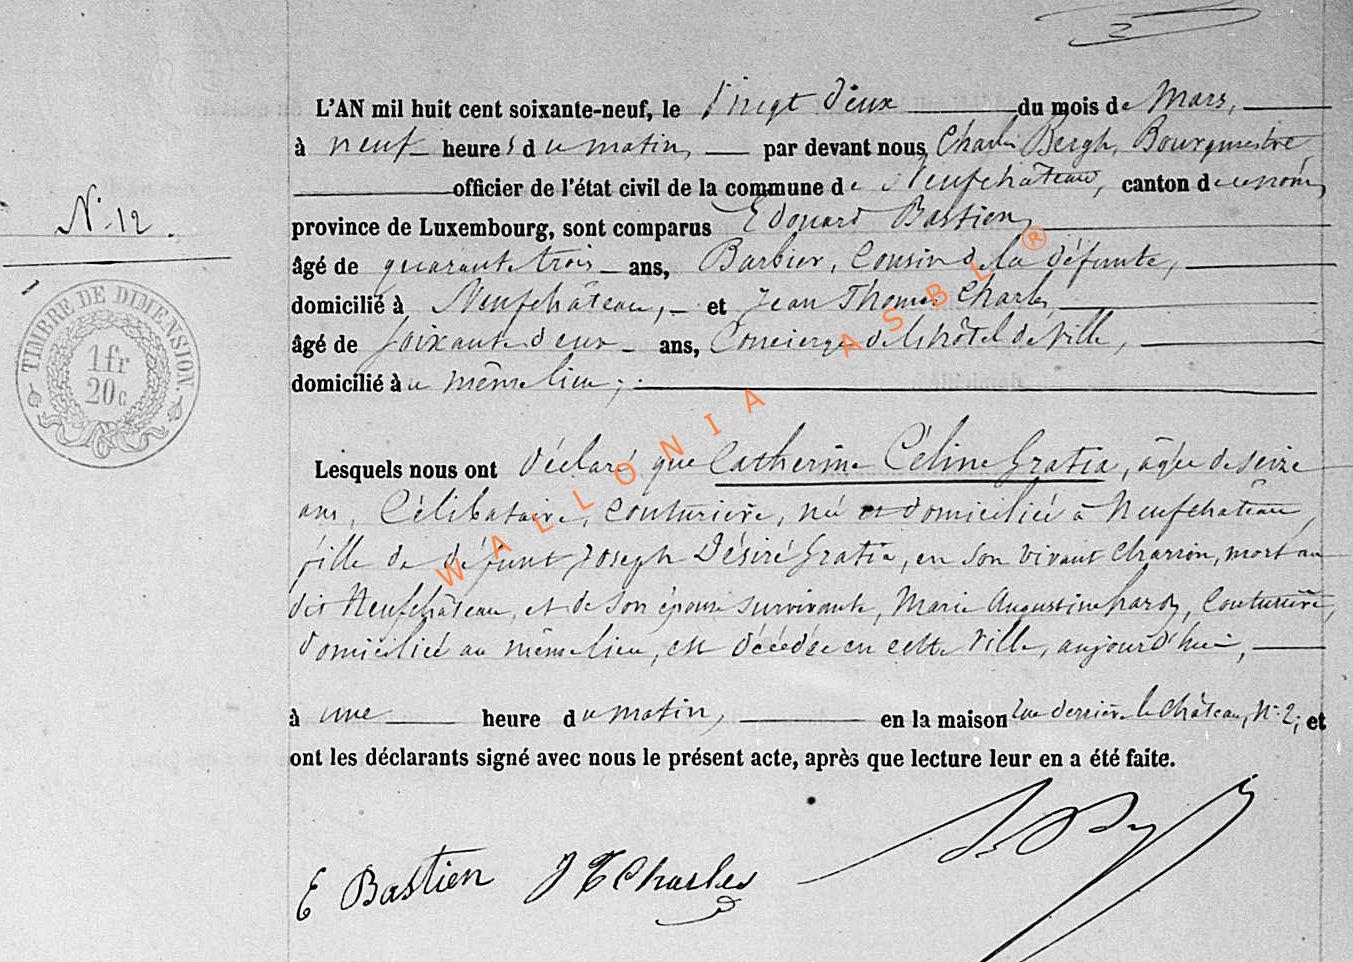 L'AN mil huit cent soixante-neuf, le Vingt deux du mois de Mars,
à neuf heures du matin, par devant nous, Charles Bergh, Bourgmestre
officier de l'état civil de la commune de Neufchâteau, canton de ce nom,
N° 12.
province de Luxembourg, sont comparus Edouard Bastien,
âgé de quarante trois ans, Barbier, Cousin de la défunte,
domicilié à Neufchâteau, et Jean Thomas Charles,
TIMBRE DE DIMENSION.
1 fr
20 c
âgé de soixante deux ans, Concierge de l'hôtel de Ville,
domicilié au même lieu;
Lesquels nous ont déclaré que Catherine Céline Gratia, âgée de seize
ans, Célibataire, Couturière, née et domiciliée à Neufchâteau,
fille de défunt Joseph Désiré Gratia, en son vivant charron, mort au
dit Neufchâteau, et de son épouse survivante, Marie Augustine hardy, Couturière,
domiciliée au même lieu, est décédée en cette Ville, aujourd'hui,
à une heure du matin, en la maison rue derrière le Château, N° 2; et
ont les déclarants signé avec nous le présent acte, après que lecture leur en a été faite.
E Bastien J T Charles
WALLONIA ASBL ®